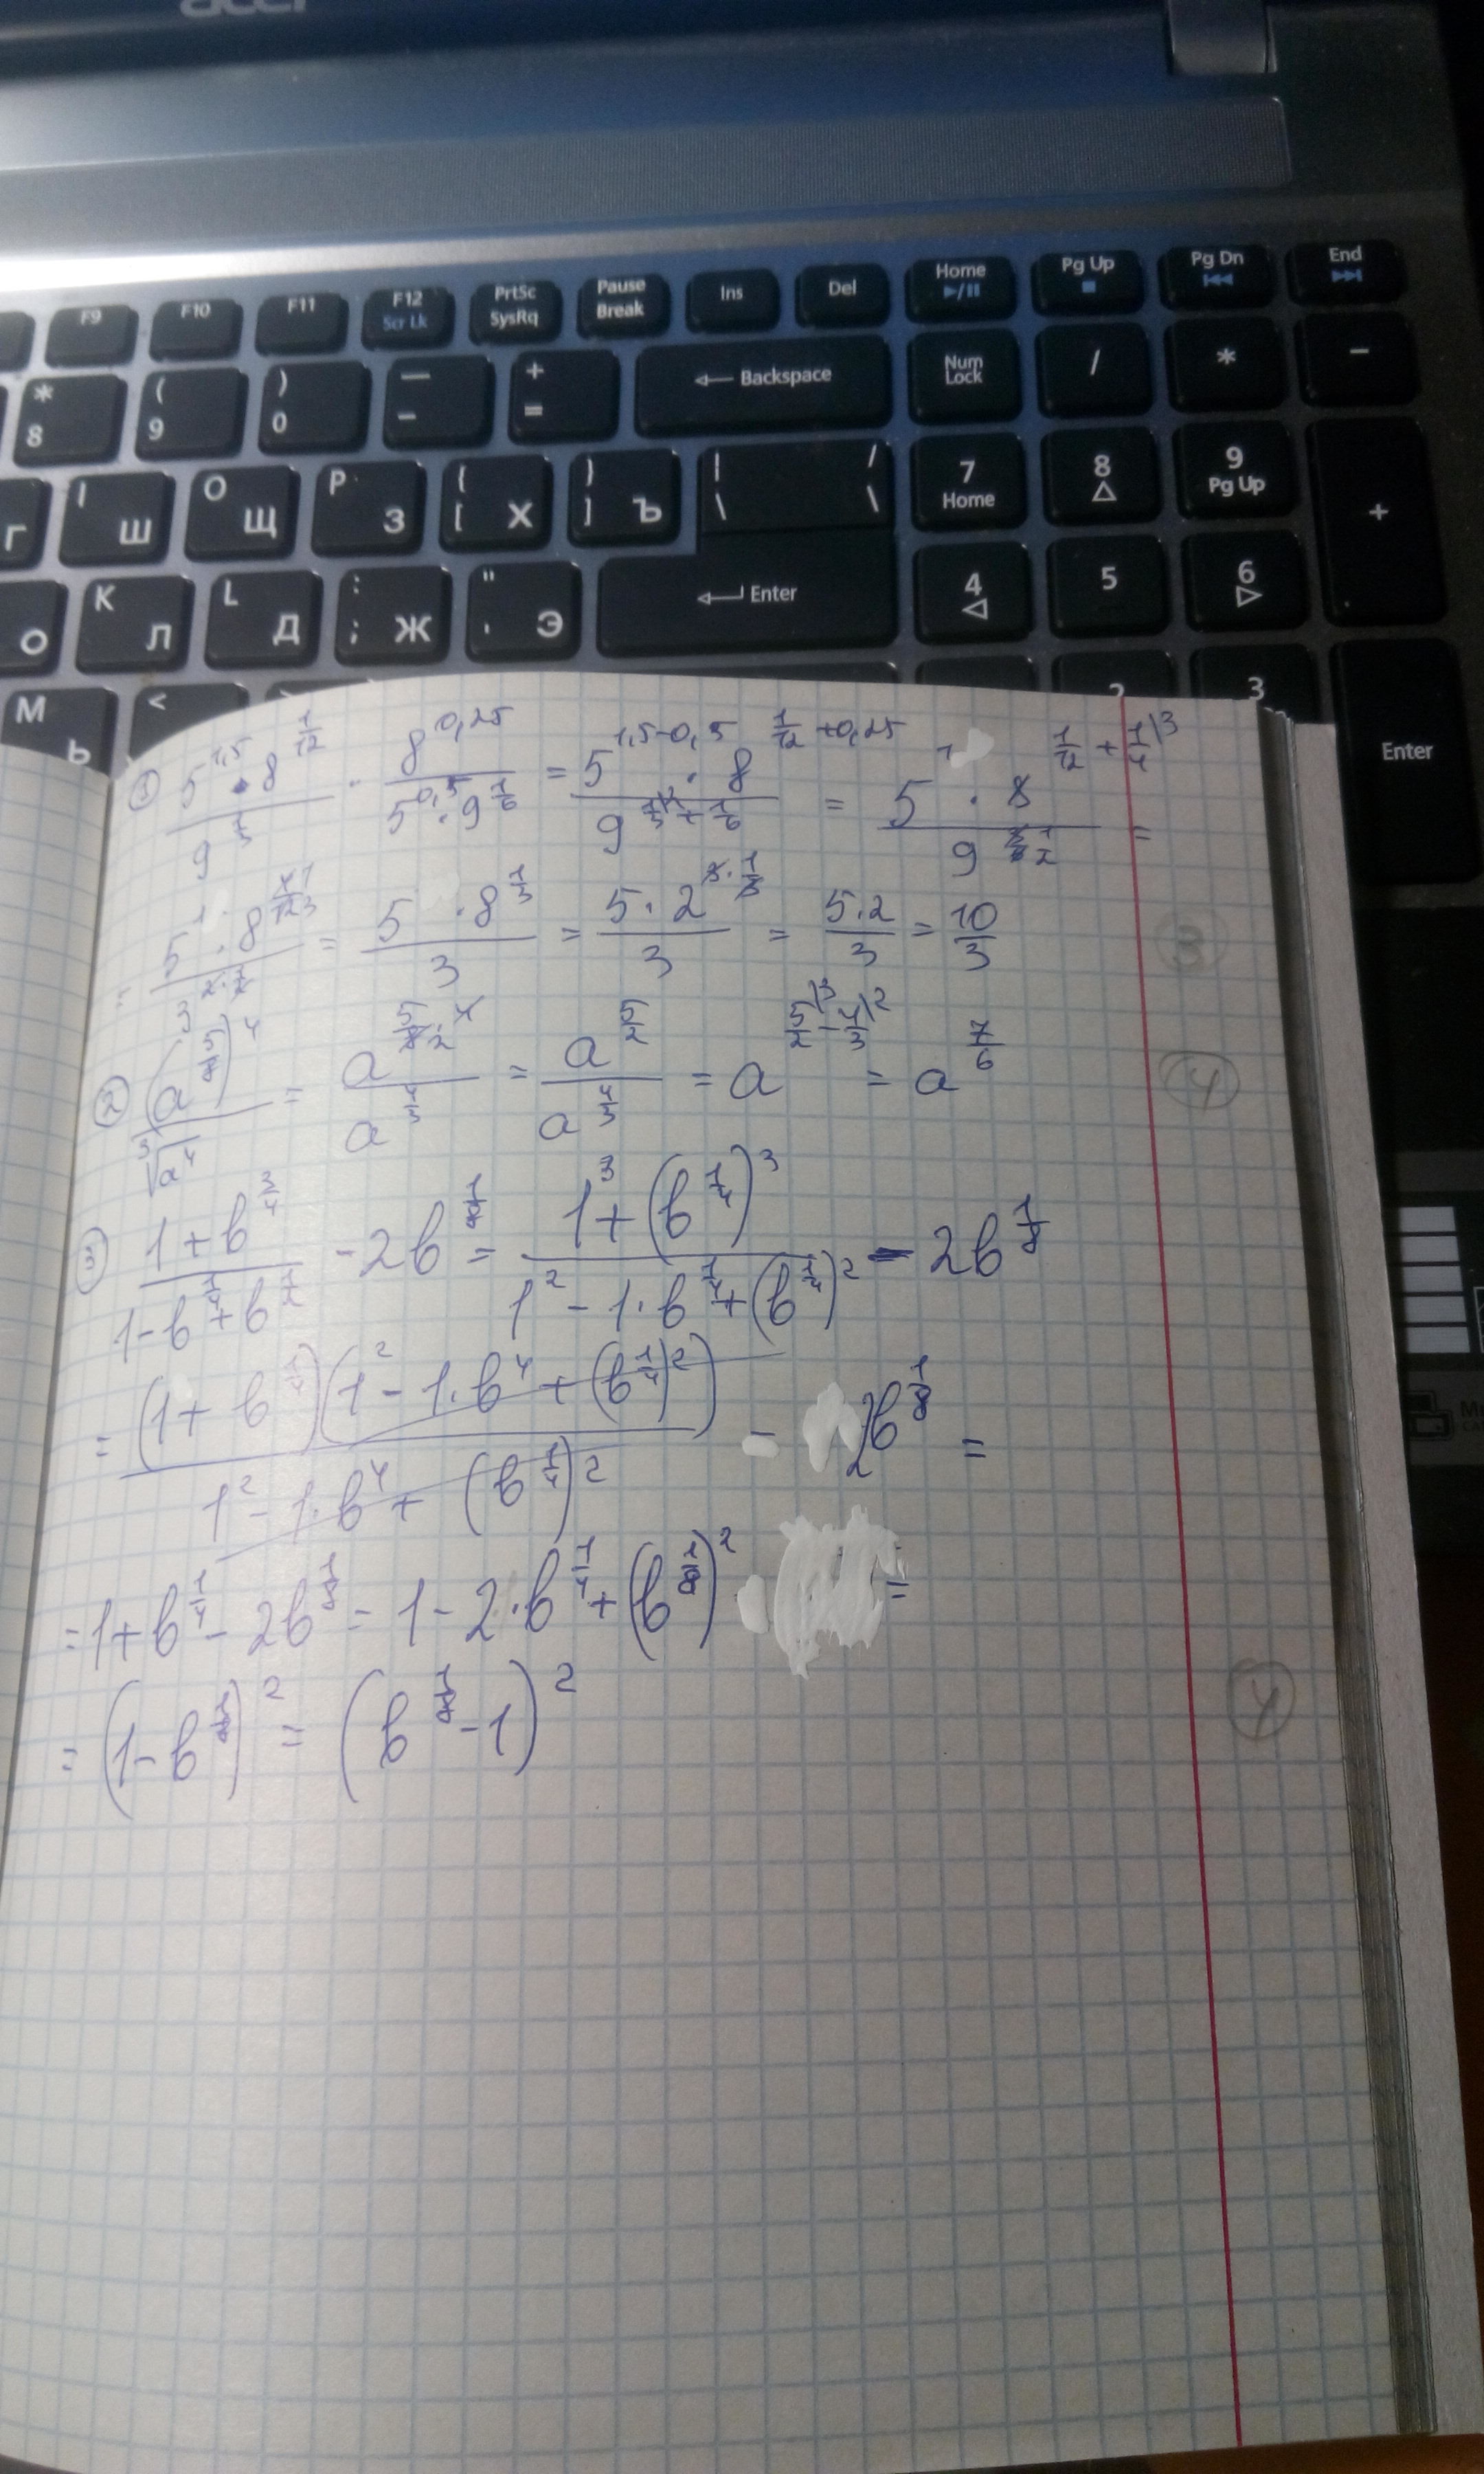 acer
F9 F10 F11 F12 Scr Lk PrtSc SysRq Pause Break Ins Del Home Pg Up Pg Dn End
* 8 ( 9 ) 0 — - + = Backspace Num Lock / * -
Г I Ш O Щ P З { [ Х } ] Ъ | \ / \ 7 Home 8 9 Pg Up +
О K Л L Д : ; Ж " ' Э Enter 4 5 6
М Ь < 2 3 Enter
① (5^{1,5} · 8^{1/12})/(9^{1/3}) · 8^{0,25}/(5^{0,5} · 9^{1/6}) = (5^{1,5-0,5} · 8^{1/12+0,25})/(9^{1/3+1/6}) = (5^1 · 8^{1/12+1/4})/(9^{1/2}) =
= (5^1 · 8^{1/3})/(3^{2·1/2}) = (5 · 8^{1/3})/3 = (5 · 2^{3·1/3})/3 = (5·2)/3 = 10/3 ③
② (a^{5/8})^4/∛(a^4) = a^{5/8·4}/a^{4/3} = a^{5/2}/a^{4/3} = a^{5/2-4/3} = a^{7/6} ④
③ (1+b^{3/4})/(1-b^{1/4}+b^{1/2}) - 2b^{1/8} = (1^3+(b^{1/4})^3)/(1^2-1·b^{1/4}+(b^{1/4})^2) - 2b^{1/8}
= ((1+b^{1/4})(1^2-1·b^4+(b^{1/4})^2))/(1^2-1·b^4+(b^{1/4})^2) - 2b^{1/8} =
= 1+b^{1/4}-2b^{1/8} = 1-2·b^{1/4}+(b^{1/8})^2 =
= (1-b^{1/8})^2 = (b^{1/8}-1)^2 ④